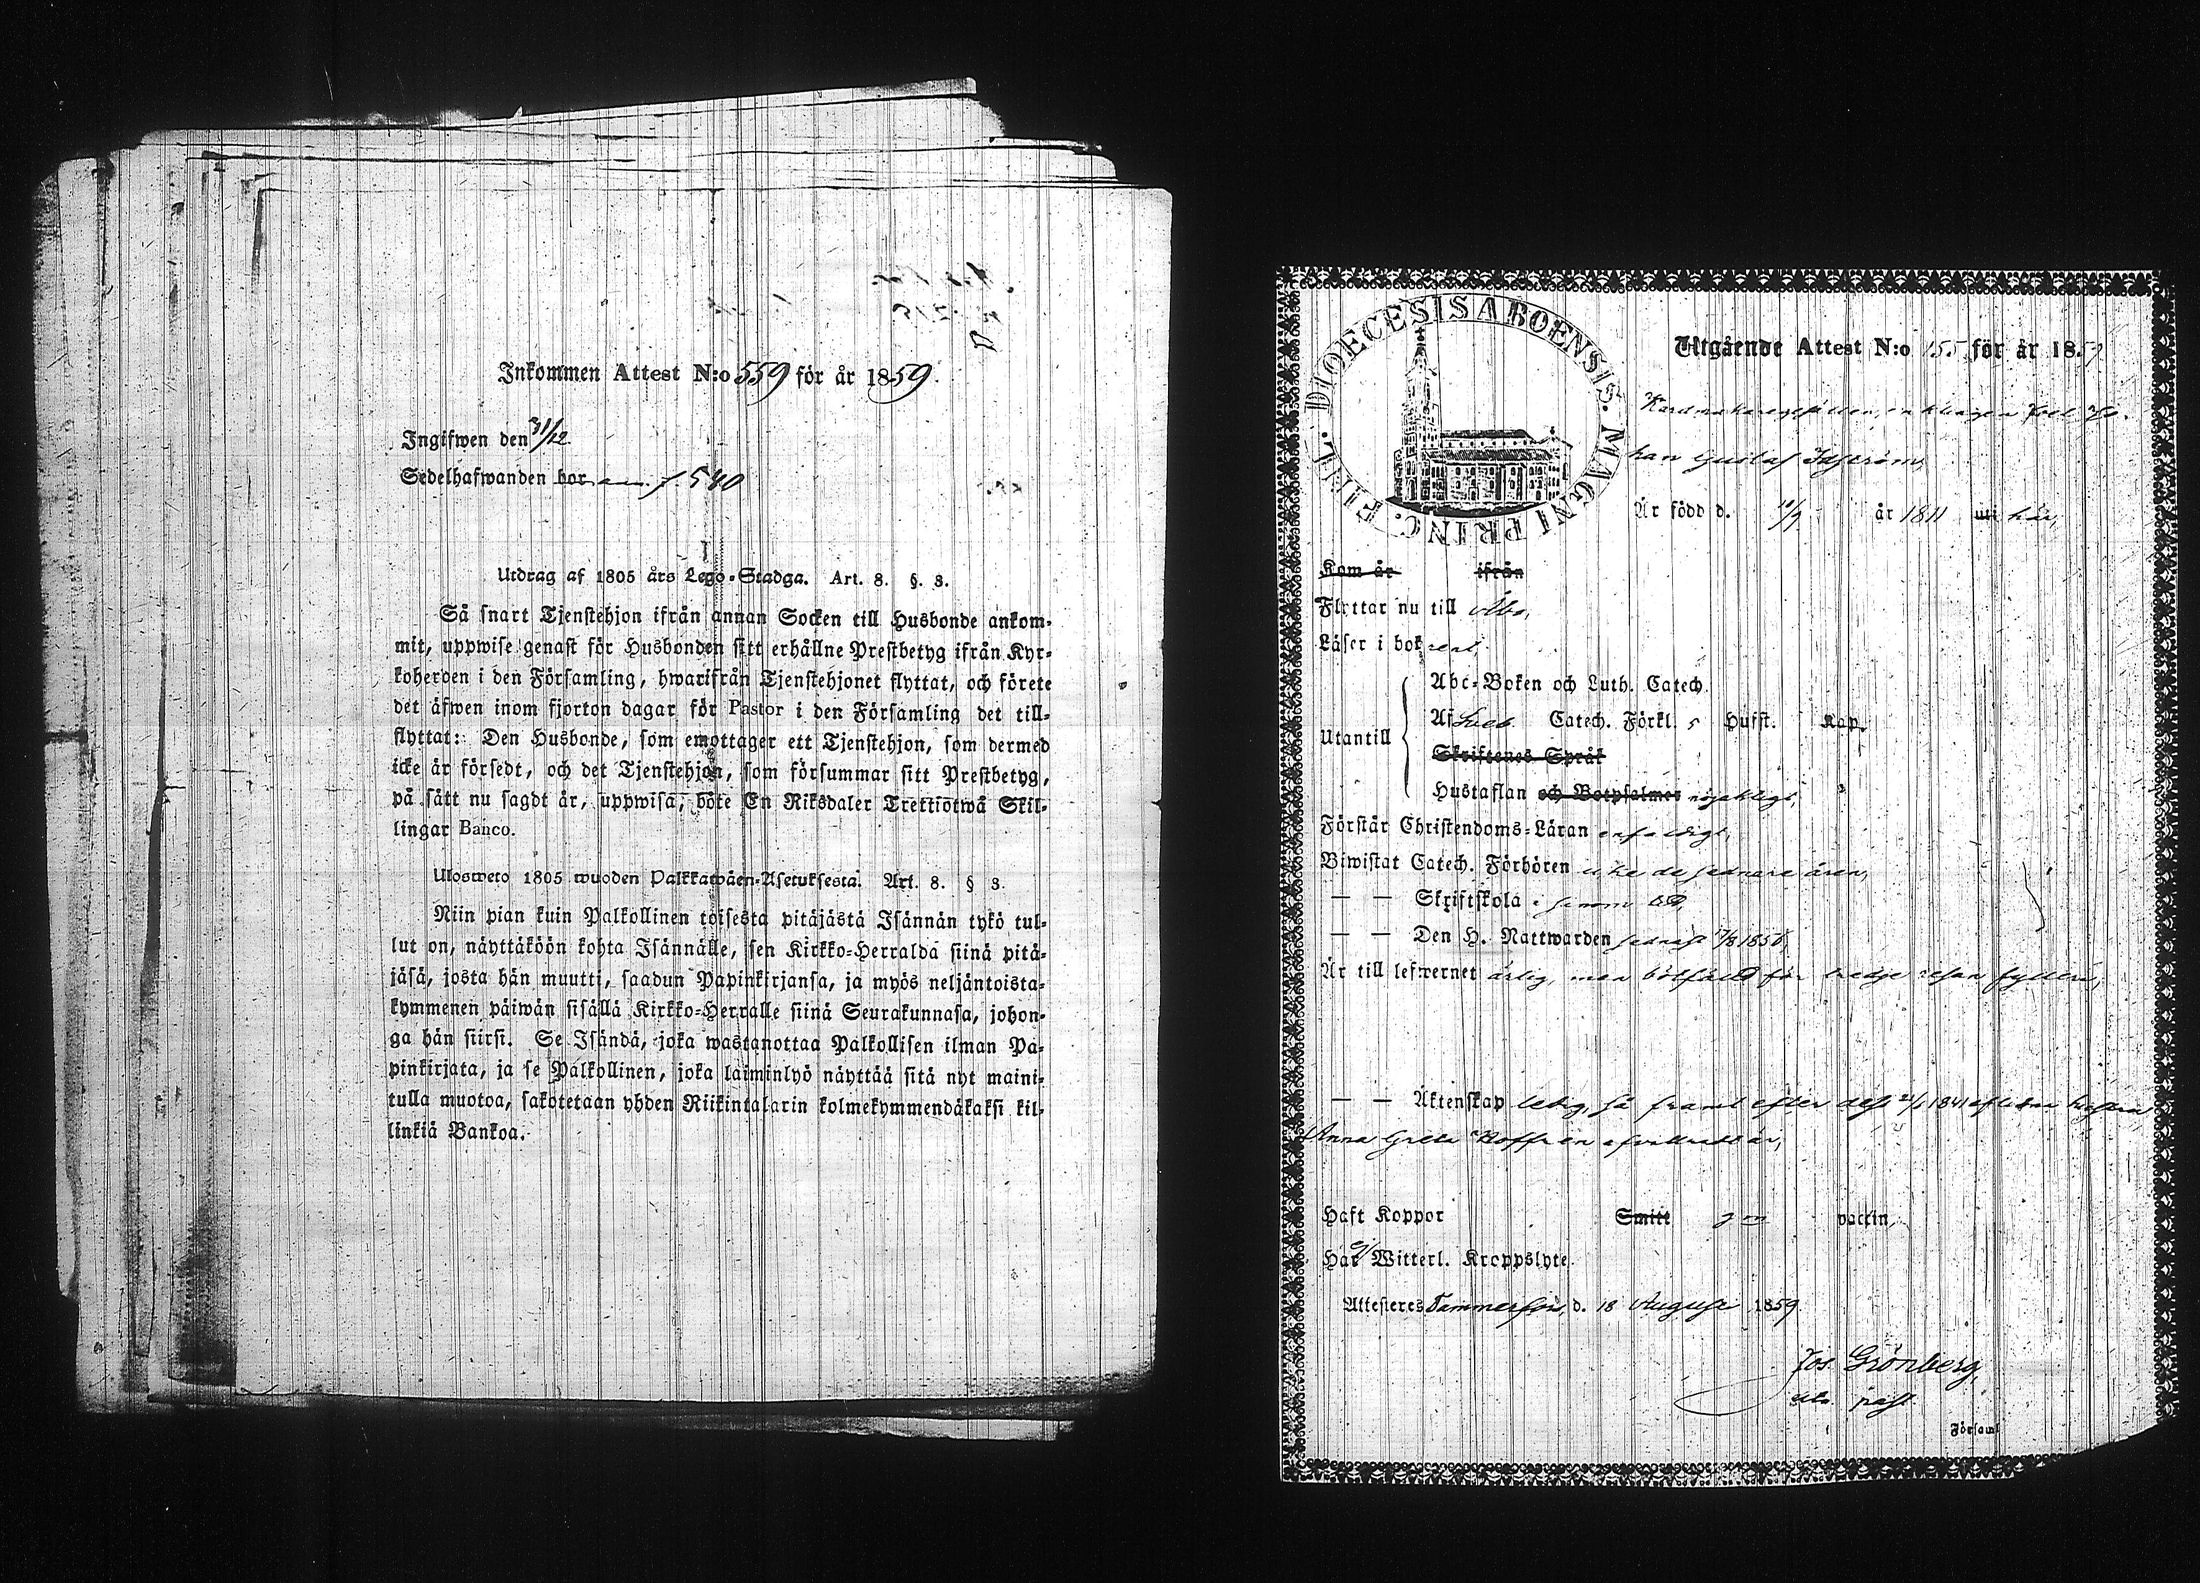 Inkommen Attest N:o 559 för år 1859.
Ingifwen den 31/12
Sedelhafwanden bor an. f. 540
Utdrag af 1805 års Lego-Stadga. Art. 8. §. 3.
Så snart Tjenstehjon ifrån annan Socken till Husbonde ankom-
mit, uppwise genast för Husbonden sitt erhållne Prestbetyg ifrån Kyr-
koherden i den Församling, hwarifrån Tjenstehjonet flyttat, och förete
det äfwen inom fjorton dagar för Pastor i den Församling det till-
flyttat: Den Husbonde, som emottager ett Tjenstehjon, som dermed
icke är försedt, och det Tjenstehjon, som försummar sitt Prestbetyg,
på sätt nu sagdt är, uppwisa, böte En Riksdaler Trettiotwå Skil-
lingar Banco.
Ulosweto 1805 wuoden Palkkawäen-Asetuksesta. Art. 8. § 3.
Niin pian kuin Palkollinen toisesta pitäjästä Isännän tykö tul-
lut on, näyttäköön kohta Isännälle, sen Kirkko-Herralda siinä pitä-
jäsä, josta hän muutti, saadun Papinkirjansa, ja myös neljäntoista-
kymmenen päiwän sisällä Kirkko-Herralle siinä Seurakunnasa, johon-
ga hän siirsi. Se Isändä, joka wastanottaa Palkollisen ilman Pa-
pinkirjata, ja se Palkollinen, joka laiminlyö näyttää sitä nyt maini-
tulla muotoa, sakotetaan yhden Riikintalarin kolmekymmendäkaksi kil-
linkiä Bankoa.
DIOECESIS ABOENSIS. MAGNI PRINC. FINL.
Utgående Attest N:o 155 för år 1859
han Gustaf
Är född d. år 1811 uti här,
Kom år ifrån
Flyttar nu till Åbo,
Läser i bok rent,
Utantill
Abc-Boken och Luth. Catech.
Af Sveb Catech. Förkl. 5 Hufst. Kap.
Skriftenes Språk
Hustaflan och Botpsalmer nöjaktigt,
Förstår Christendoms-Läran enfaldigt,
Biwistat Catech. Förhören icke de sednare åren,
— — Skriftskola
— — Den H. Nattwarden sednast
Är till lefwernet ärlig, men bötfälld för tredje resan fylleri,
— — Äktenskap ledig, så framt efter dess 1841 aflidna hustru
Anna Greta
Haft Koppor Smitt vaccin
Har ej Witterl. Kroppslyte.
Attesteres Tammerfors, d. 18 August 1859
Jos. Grönberg,
past.
Församl